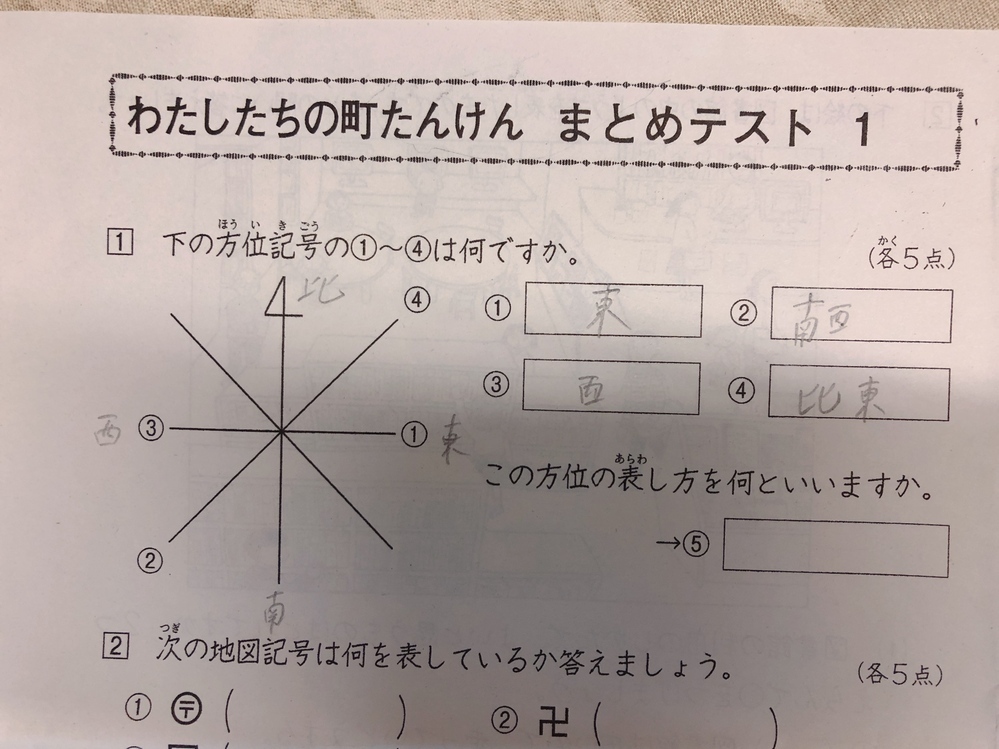 わたしたちの町たんけん まとめテスト 1
1 下の方位記号の①～④は何ですか。 (各5点)
ほういきごう
かく
北
④
① 東 ② 南西
③ 西 ④ 北東
西 ③ ① 東
この方位の表し方を何といいますか。
あらわ
→⑤
②
南
2 次の地図記号は何を表しているか答えましょう。 (各5点)
つぎ
① 〶 ( ) ② 卍 ( )